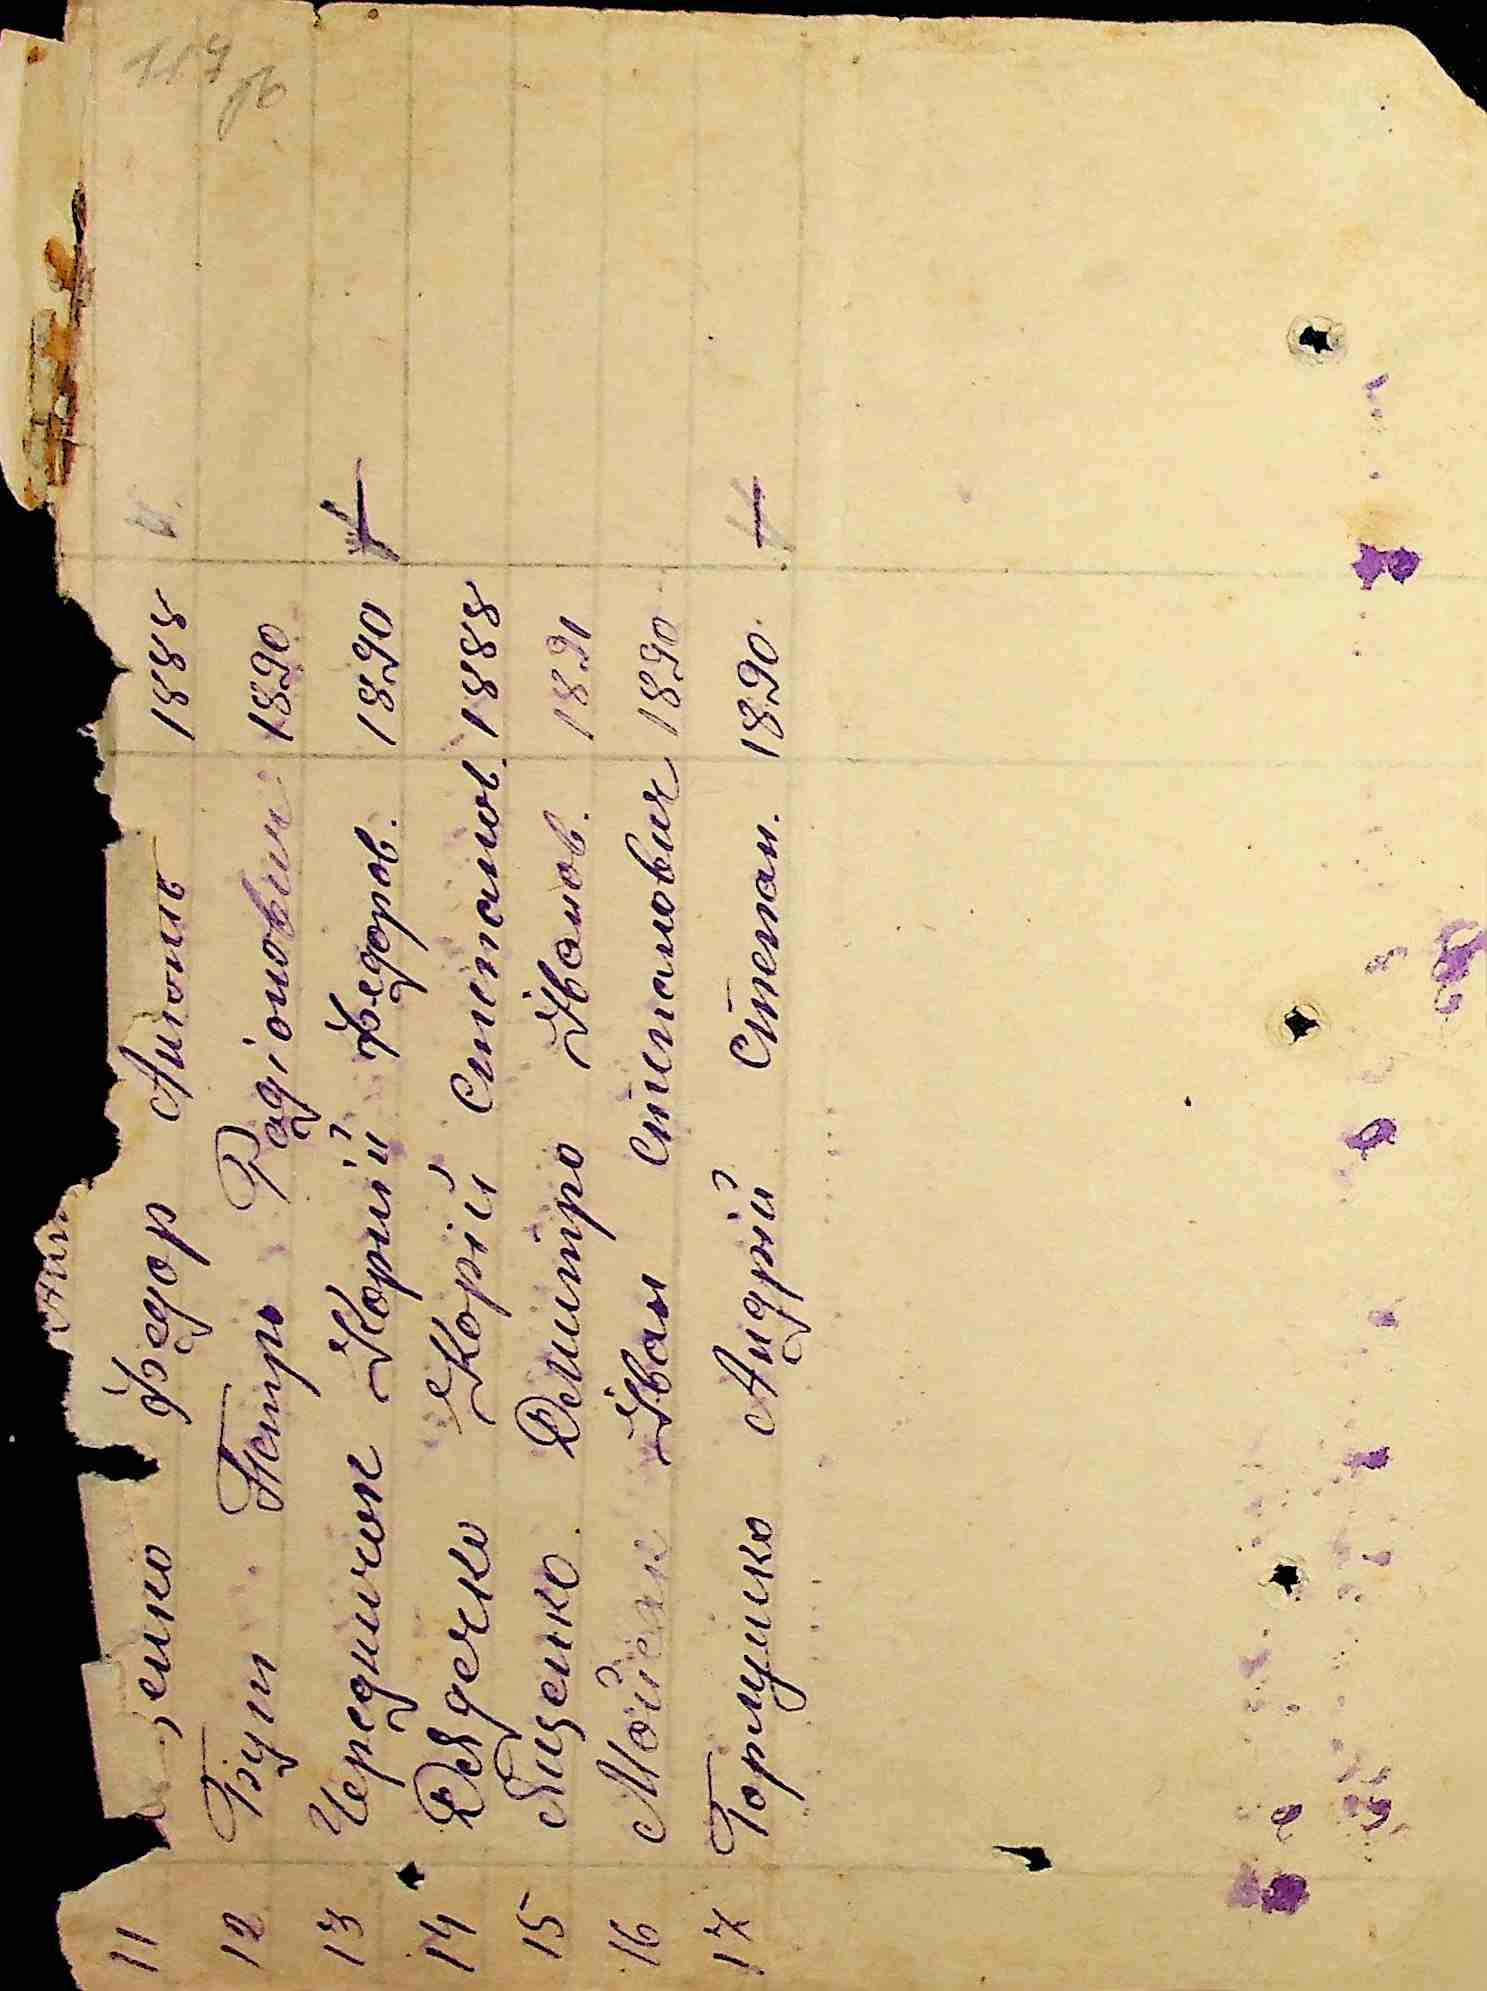 117 зв
11 енко Федор Антонів 1888
12 Бут Петро Радіонович 1890
13 Чередничок Корній Федоров. 1890 +
14 Дядечко Корій Степанов. 1888
15 Яценко Дмитро Іванов. 1891
16 Мойсеик Іван Степанович 1890
17 Горпушко Андрій Степан. 1890 +